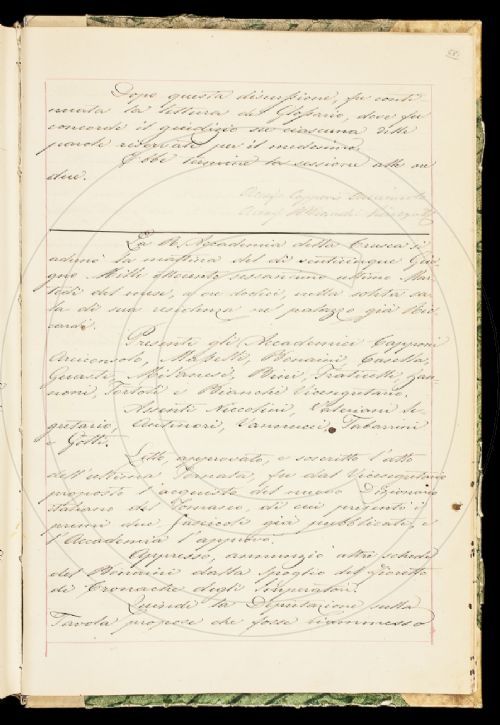 Dopo questa discussione, fu conti-
nuata la lettura del Glossario, dove fu
concorde il giudizio su ciascuna delle
parole per il medesimo.
Ebbe termine la sessione alle ore
dieci.
Capponi Arciconsolo
Bianchi
La R. Accademia della Crusca si
adunò la mattina del dì venticinque Giu-
gno Mille ottocento sessantuno ultimo Mar-
tedì del mese, a ore dodici, nella solita sa-
la di sua residenza nel palazzo già Ric-
cardi.
Presenti gli Accademici Capponi
Arciconsolo, Bonaini, Casella,
Guasti, Milanesi, Bini, Fraticelli, Zan-
noni, Tortoli e Bianchi Vicesegretario.
Assenti Niccolini, Valeriani Se-
gretario, Centinori, Vannucci, Tabarrini
e Gotti.
Letto, approvato, e soscritto l'atto
dell'ultima Tornata, fu dal Vicesegretario
proposto l'acquisto del nuovo Dizionario
italiano del Tommaseo, di cui presentò i
primi due fascicoli già pubblicati, e
l'Accademia l'approvò.
Appresso, annunziò altre schede
del Bonaini dallo spoglio del Fioretto
di Cronache degli Imperatori.
Quindi la Deputazione sulla
Tavola propose che fosse ricommesso